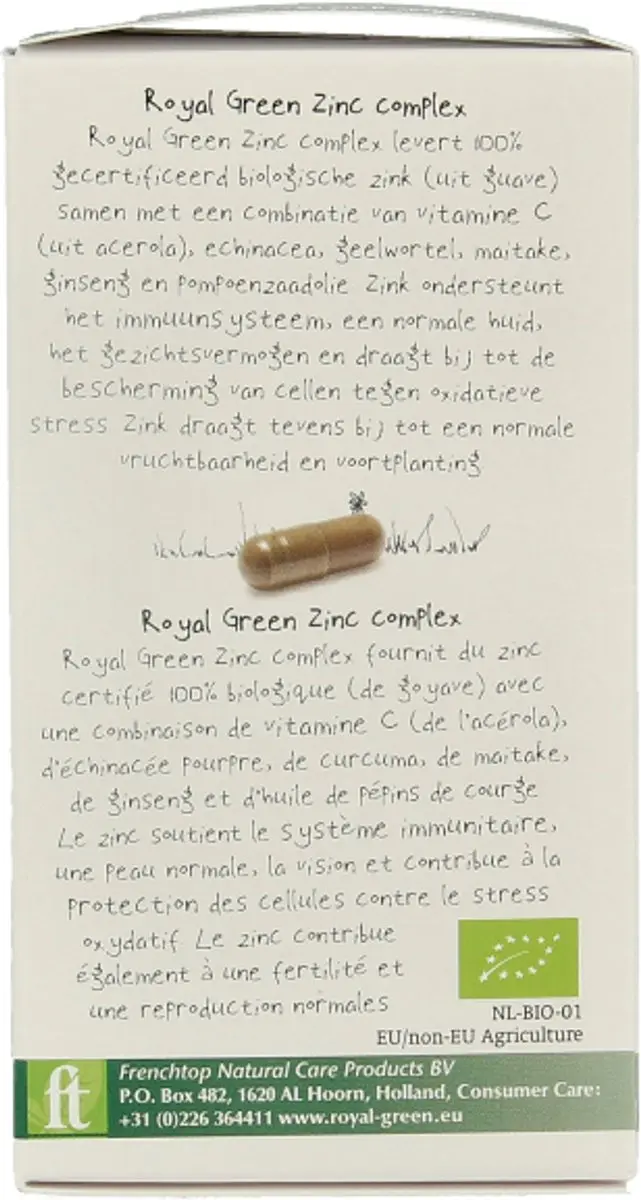 Royal Green Zinc complex
Royal Green Zinc complex levert 100%
gecertificeerd biologische zink (uit guave)
samen met een combinatie van vitamine C
(uit acerola), echinacea, geelwortel, maitake,
ginseng en pompoenzaadolie Zink ondersteunt
het immuunsysteem, een normale huid,
het gezichtsvermogen en draagt bij tot de
bescherming van cellen tegen oxidatieve
stress Zink draagt tevens bij tot een normale
vruchtbaarheid en voortplanting
Royal Green Zinc complex
Royal Green Zinc complex fournit du zinc
certifié 100% biologique (de goyave) avec
une combinaison de vitamine C (de l'acérola),
d'échinacée pourpre, de curcuma, de maitake,
de ginseng et d'huile de pépins de courge
Le zinc soutient le système immunitaire,
une peau normale, la vision et contribue à la
protection des cellules contre le stress
oxydatif Le zinc contribue
également à une fertilité et
une reproduction normales
NL-BIO-01
EU/non-EU Agriculture
ft
Frenchtop Natural Care Products BV
P.O. Box 482, 1620 AL Hoorn, Holland, Consumer Care:
+31 (0)226 364411 www.royal-green.eu